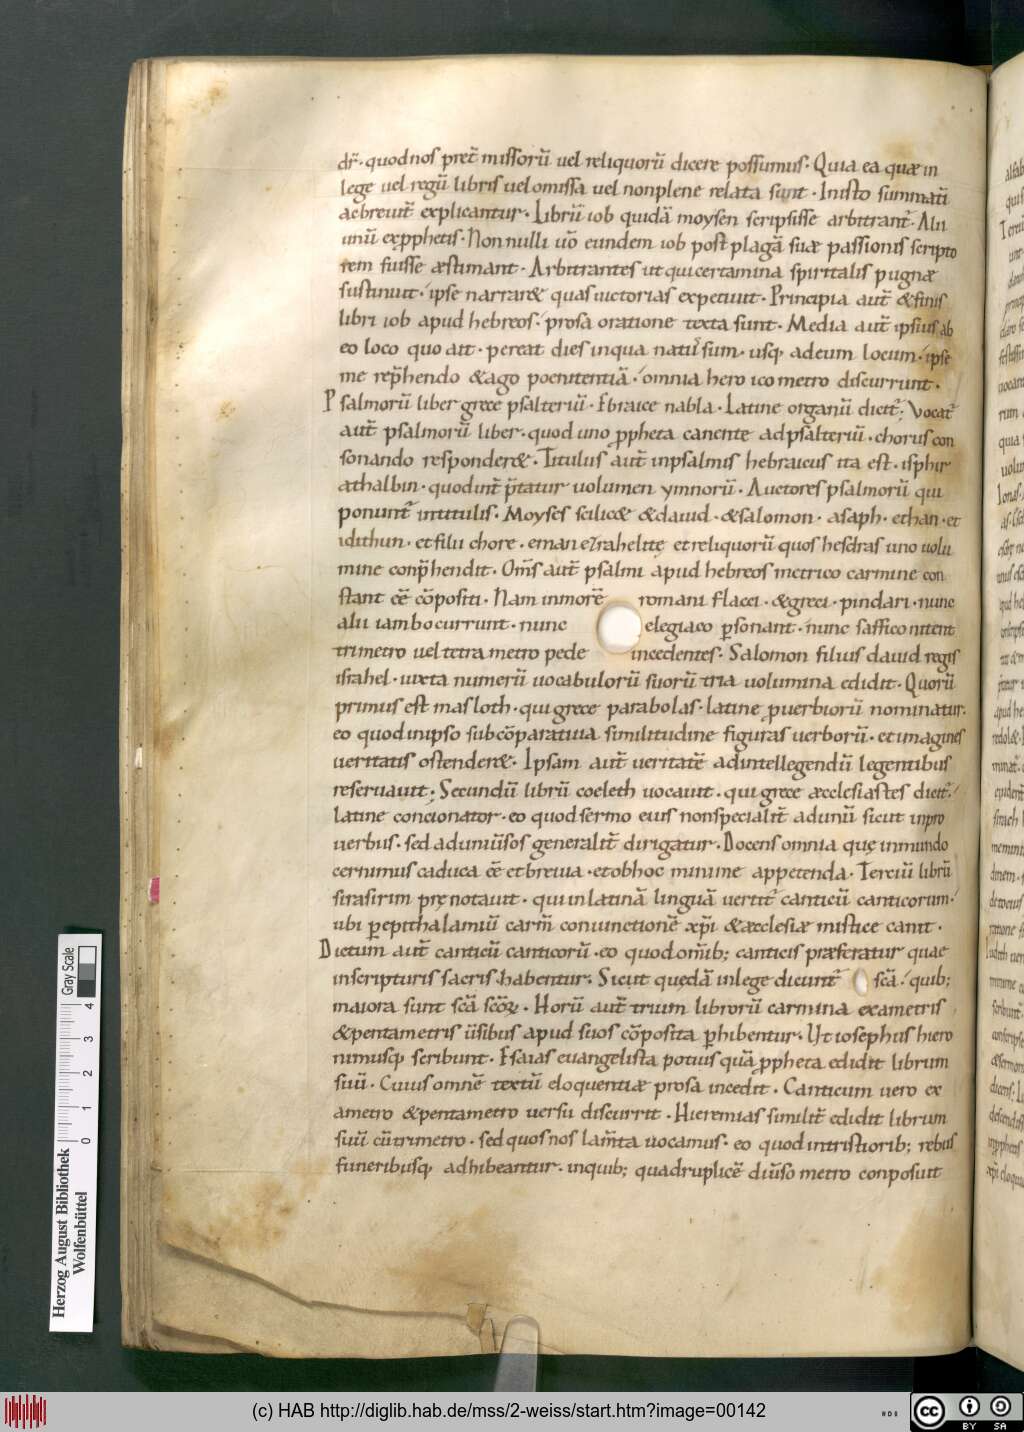 dr̄· quod nos pret̄missorū uel reliquorū dicere possumus· Quia ea quæ in
lege uel regū libris uel omissa uel non plene relata sunt· In isto summati
ac breuit̄ explicantur· Librū iob quidā moysen scripsisse arbitrant̄· Alii
unū ex ꝓphetis· Non nulli uō eundem iob post plagā suæ passionis scripto
rem fuisse æstimant· Arbitrantes ut qui certamina spiritalis pugnæ
sustinuit· ipse narrar& quas uictorias expetiuit· Principia aut̄ & finis
libri iob apud hebreos· prosa oratione texta sunt· Media aut̄ ipsius ab
eo loco quo ait· pereat dies in qua natus sum· usq; ad eum locum· ipse
me rep̄hendo & ago poenitentiā· omnia heroico metro discurrunt·
Psalmorū liber grece psalteriū· Ebraice nabla· Latine organū dicit̄· Vocat̄
aut̄ psalmorū liber· quod uno ꝓpheta canente ad psalteriū· chorus con
sonando responder&· Titulus aut̄ in psalmis hebraicus ita est· sephir
athallin· quod int̄p̄tatur uolumen ymnorū· Auctores psalmorū qui
ponunt̄ in titulis· Moyses scilic& & dauid· & salomon· asaph· ethan· et
idithun· et filii chore· eman ezrahelitę et reliquorū quos hesdras uno uolu
mine conp̄hendit· Om̄s aut̄ psalmi apud hebreos metrico carmine con
stant eē cōpositi· Nam in morē romani flacci· & greci· pindari· nunc
alii iambo currunt· nunc elegiaco ꝑsonant· nunc saffico nitent
trimetro uel tetrametro pede incedentes· Salomon filius dauid regis
israhel· iuxta numerū uocabulorū suorū tria uolumina edidit· Quorū
primus est masloth· qui grece parabolas· latine ꝓuerbiorū nominatur·
eo quod in ipso sub cōparatiua similitudine figuras uerborū· et imagines
ueritatis ostender&· Ipsam aut̄ ueritatē ad intellegendū legentibus
reseruauit; Secundū librū coeleth uocauit· qui grece æcclesiastes dicit̄·
latine concionator· eo quod sermo eius non specialit̄ ad unū sicut in pro
uerbiis· sed ad uniūsos generalit̄ dirigatur· Docens omnia quę in mundo
cernimus caduca eē et breuia· et ob hoc minime appetenda· Terciū librū
sirasirim prę notauit· qui in latinā linguā uertit̄ canticū canticorum·
ubi ꝑ epithalamiū carm̄ coniunctionē xp̄i & æcclesiæ mistice canit·
Dictum aut̄ canticū canticorū· eo quod om̄ib; canticis præferatur quae
in scripturis sacris habentur· Sicut quędā in lege dicunt̄ scā· quib;
maiora sunt scā scōꝝ· Horū aut̄ trium librorū carmina exametris
& pentametris ūsibus apud suos cōposita ꝑhibentur· Ut iosephus hiero
nimusq; scribunt· Esaias euangelista potius quā ꝓpheta edidit librum
suū· Cuius omnē textū eloquentiæ prosa incedit· Canticum uero ex
ametro & pentametro uersu discurrit· Hieremias similit̄ edidit librum
suū cū trimetro· sed quos nos lam̄ta uocamus· eo quod in tristiorib; rebus
funeribusq; adhibeantur· in quib; quadruplicē diūso metro conposuit
Herzog August Bibliothek
Wolfenbüttel
Gray Scale
0 1 2 3 4
(c) HAB http://diglib.hab.de/mss/2-weiss/start.htm?image=00142
cc BY SA